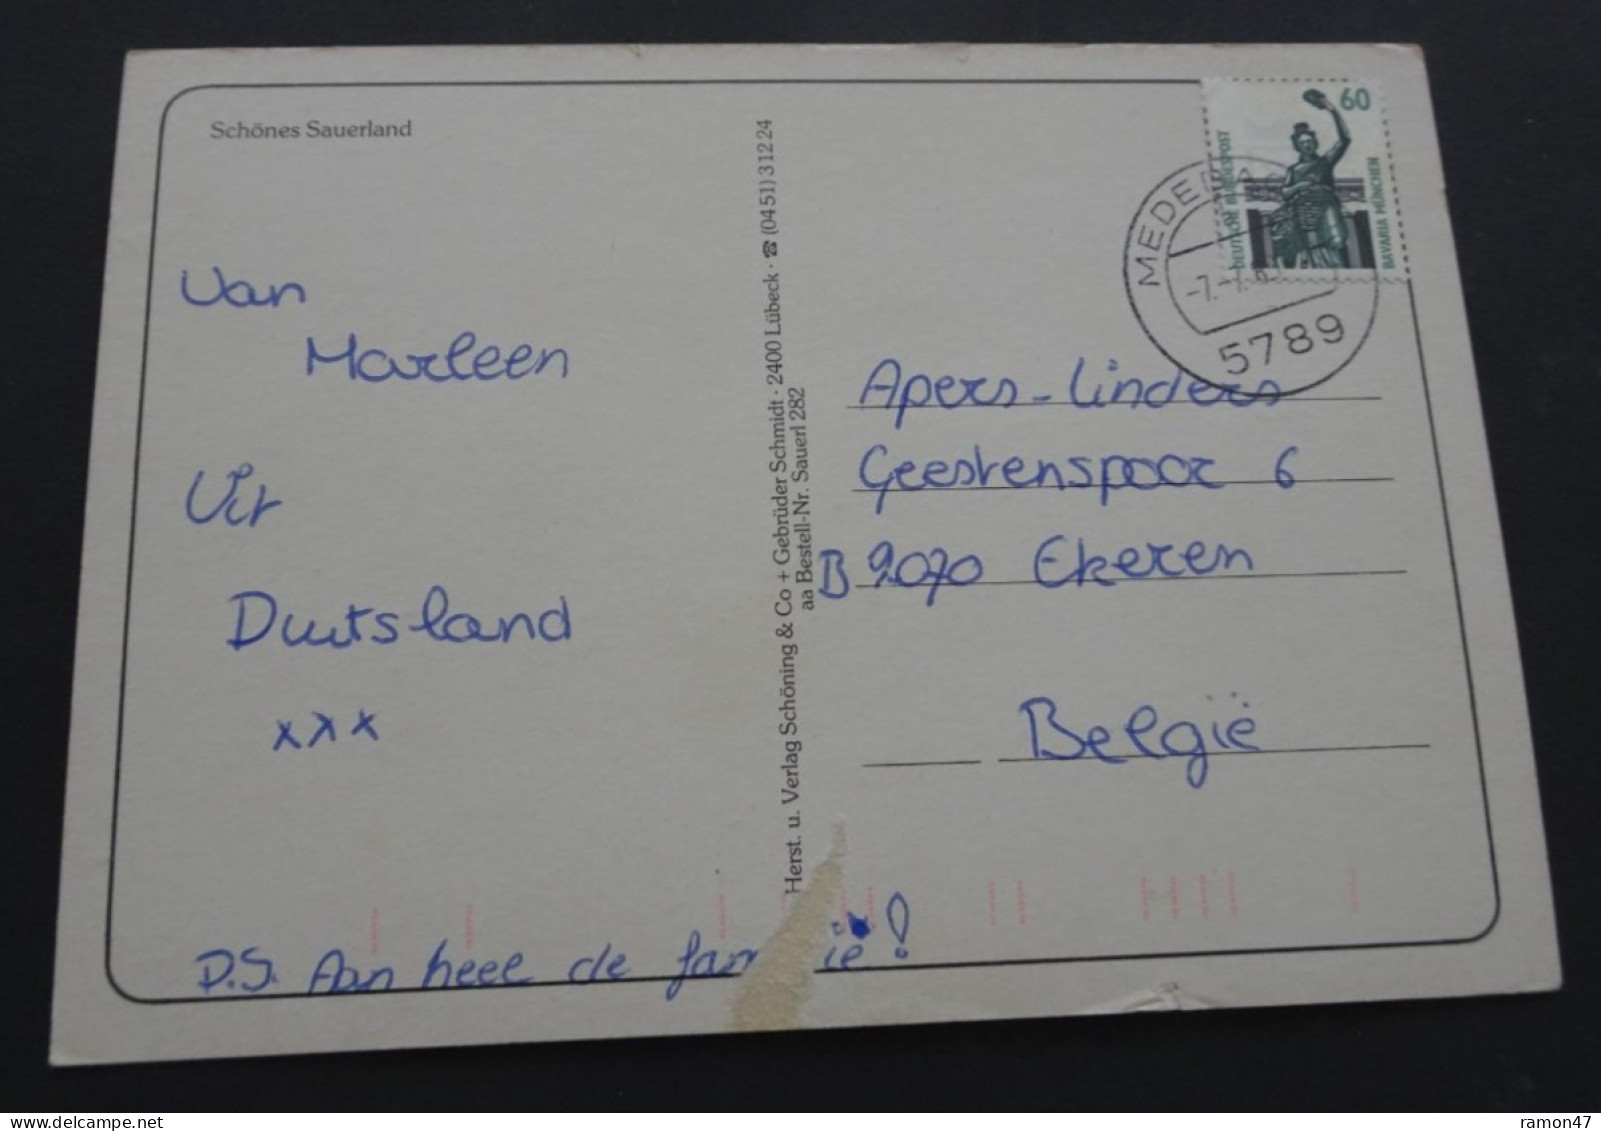 Schönes Sauerland
Van
Marleen
Uit
Duitsland
xxx
P.S. Aan heel de familie!
Herst. u. Verlag Schöning & Co + Gebrüder Schmidt · 2400 Lübeck · ☎ (0451) 31224
aa Bestell-Nr. Sauerl 282
60
DEUTSCHE BUNDESPOST
BAVARIA MÜNCHEN
5789
Apers-Linders
Geestenspoor 6
B 2070 Ekeren
België
delcampe.net
ramon47